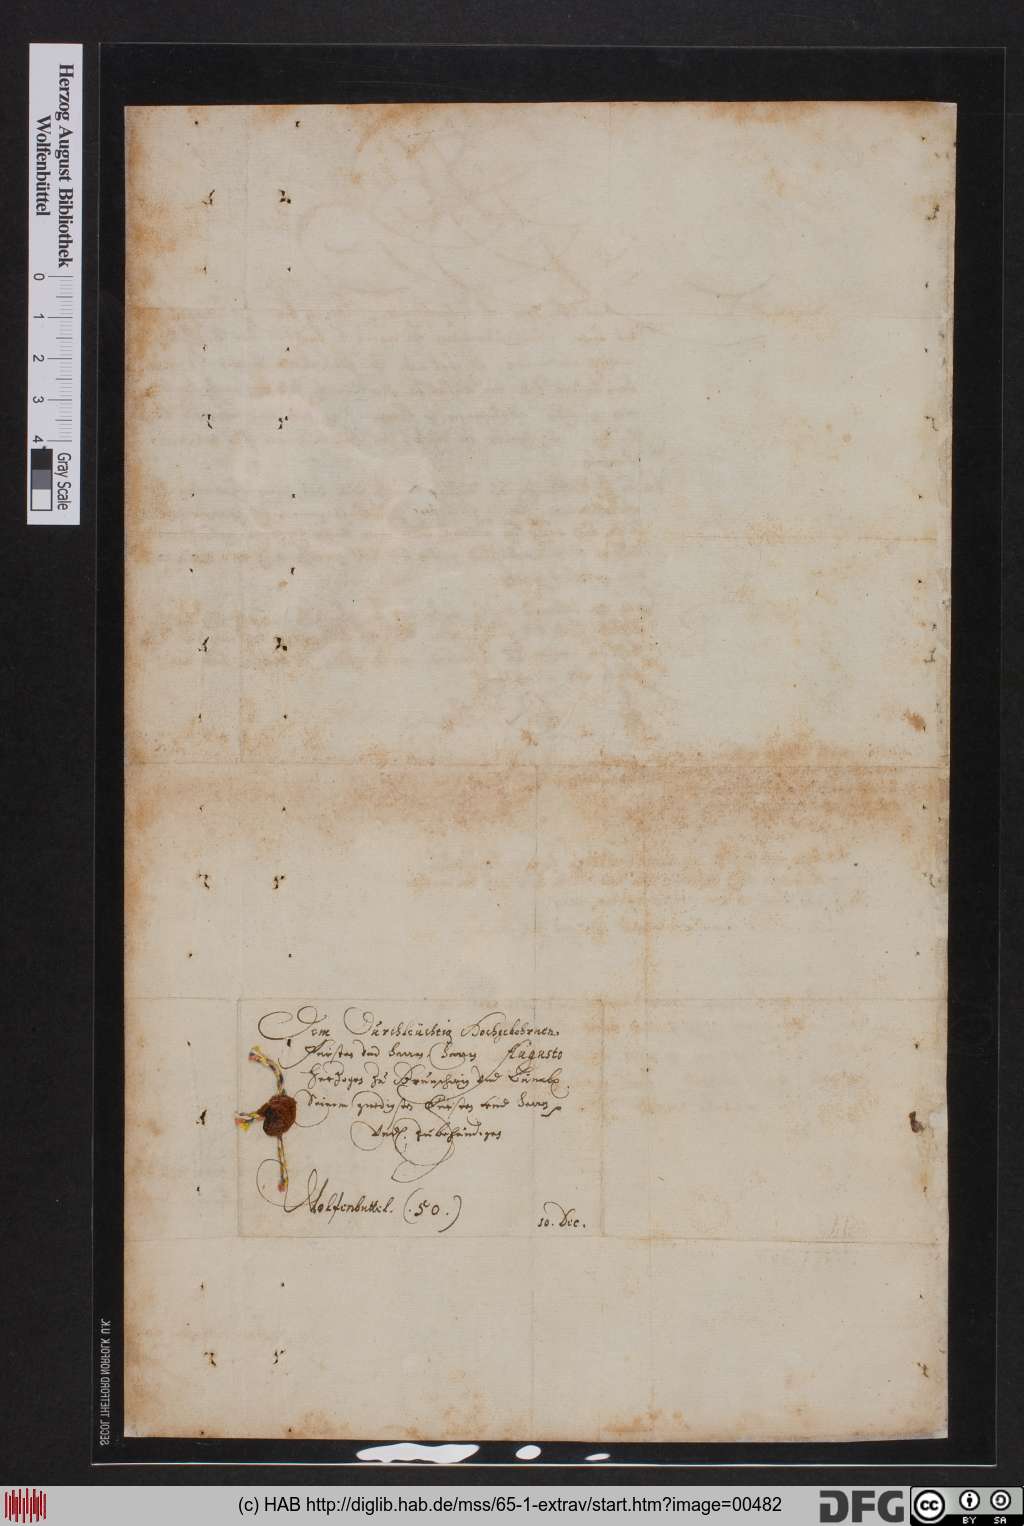 Herzog August Bibliothek
Wolfenbüttel
0 1 2 3 4
Gray Scale
Dem Durchleüchtig Hochgebohrnen.
Fürsten und Herrn, Herrn Augusto
Hertzogen zu Brunschwig und Lüneb.
Seinem gnedigsten Fürsten und Herrn
Wolfenbuttel. (.50.)
10. Dec.
SECOL THETFORD NORFOLK U.K.
(c) HAB http://diglib.hab.de/mss/65-1-extrav/start.htm?image=00482
DFG
cc
BY SA